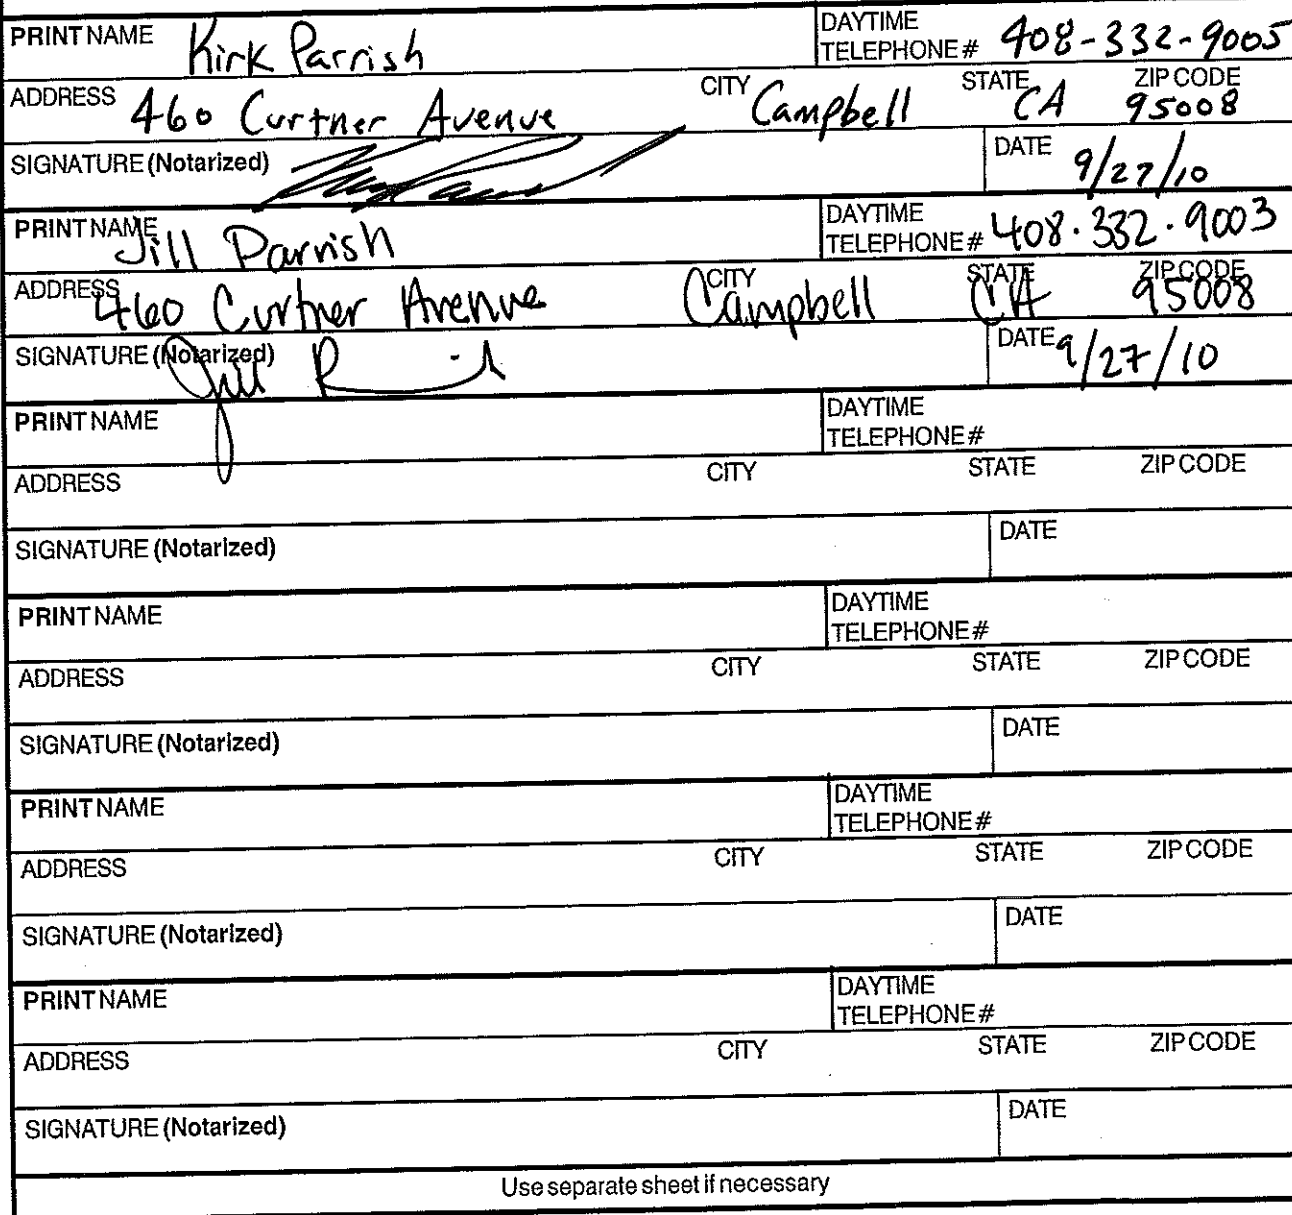 PRINT NAME Kirk Parrish DAYTIME TELEPHONE # 408-332-9005
ADDRESS 460 Curtner Avenue CITY Campbell STATE CA ZIP CODE 95008
SIGNATURE (Notarized) DATE 9/27/10
PRINT NAME Jill Parrish DAYTIME TELEPHONE # 408.332.9003
ADDRESS 460 Curtner Avenue CITY Campbell STATE CA ZIP CODE 95008
SIGNATURE (Notarized) Jill DATE 9/27/10
PRINT NAME DAYTIME TELEPHONE #
ADDRESS CITY STATE ZIP CODE
SIGNATURE (Notarized) DATE
PRINT NAME DAYTIME TELEPHONE #
ADDRESS CITY STATE ZIP CODE
SIGNATURE (Notarized) DATE
PRINT NAME DAYTIME TELEPHONE #
ADDRESS CITY STATE ZIP CODE
SIGNATURE (Notarized) DATE
PRINT NAME DAYTIME TELEPHONE #
ADDRESS CITY STATE ZIP CODE
SIGNATURE (Notarized) DATE
Use separate sheet if necessary